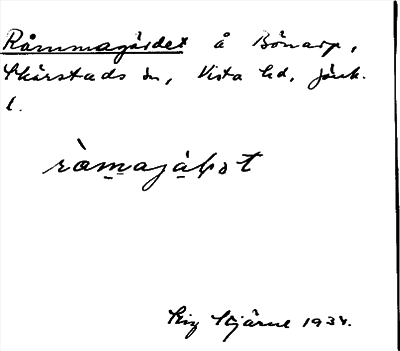 Råmmagärdet å Bönarp,
Skärstads sn, Vista hd, Jönk.
l.
ràmajàḷət
Stig Stjärne 1934.